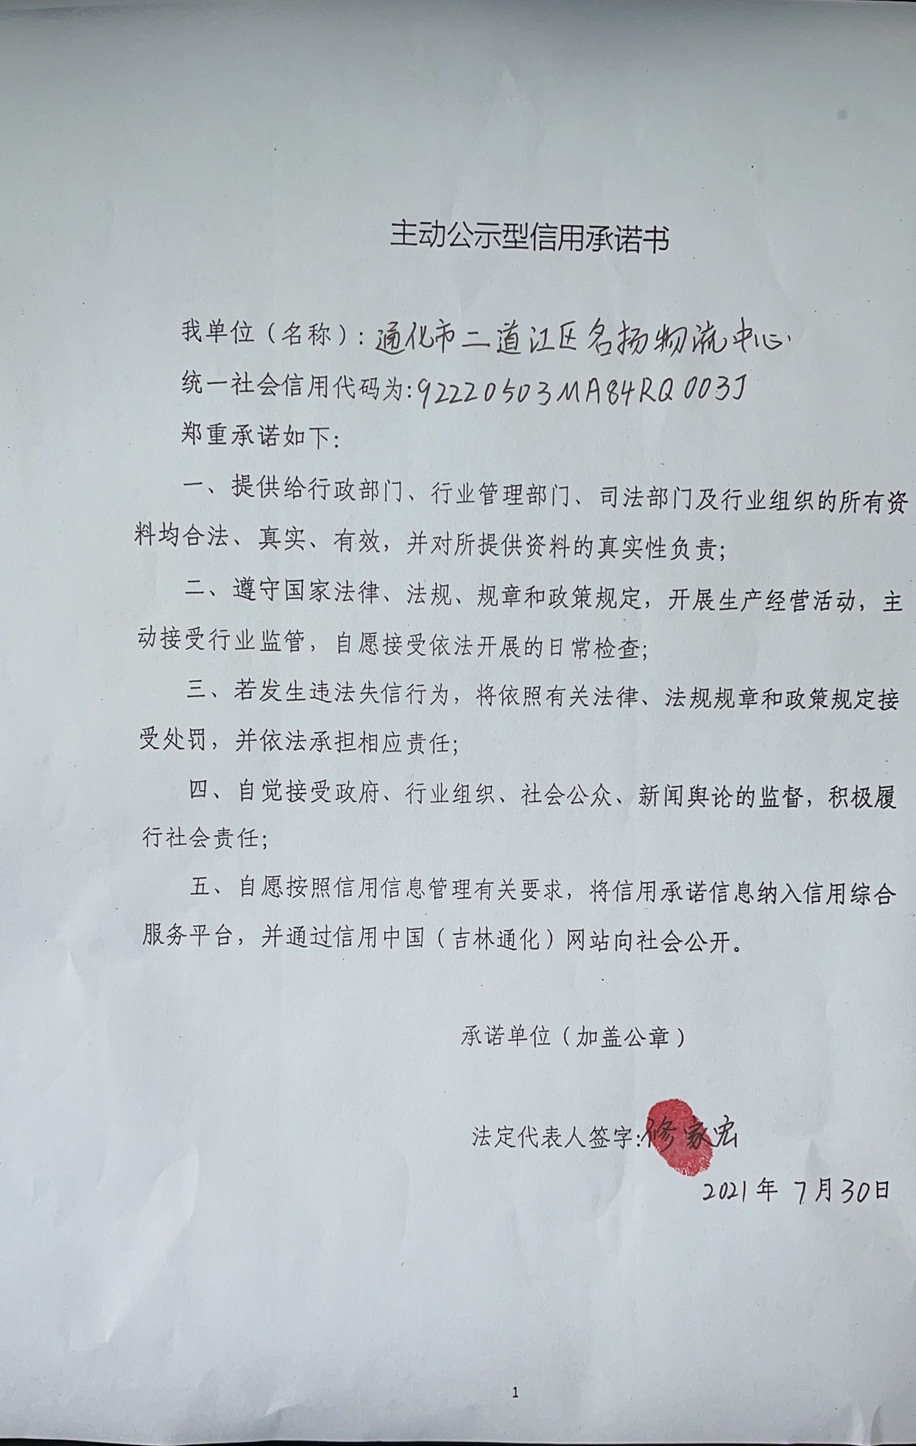 主动公示型信用承诺书
我单位（名称）：通化市二道江区名扬物流中心
统一社会信用代码为：92220503MA84RQ003J
郑重承诺如下：
一、提供给行政部门、行业管理部门、司法部门及行业组织的所有资
料均合法、真实、有效，并对所提供资料的真实性负责；
二、遵守国家法律、法规、规章和政策规定，开展生产经营活动，主
动接受行业监管，自愿接受依法开展的日常检查；
三、若发生违法失信行为，将依照有关法律、法规规章和政策规定接
受处罚，并依法承担相应责任；
四、自觉接受政府、行业组织、社会公众、新闻舆论的监督，积极履
行社会责任；
五、自愿按照信用信息管理有关要求，将信用承诺信息纳入信用综合
服务平台，并通过信用中国（吉林通化）网站向社会公开。
承诺单位（加盖公章）
法定代表人签字：修家宏
2021年 7月30日
1